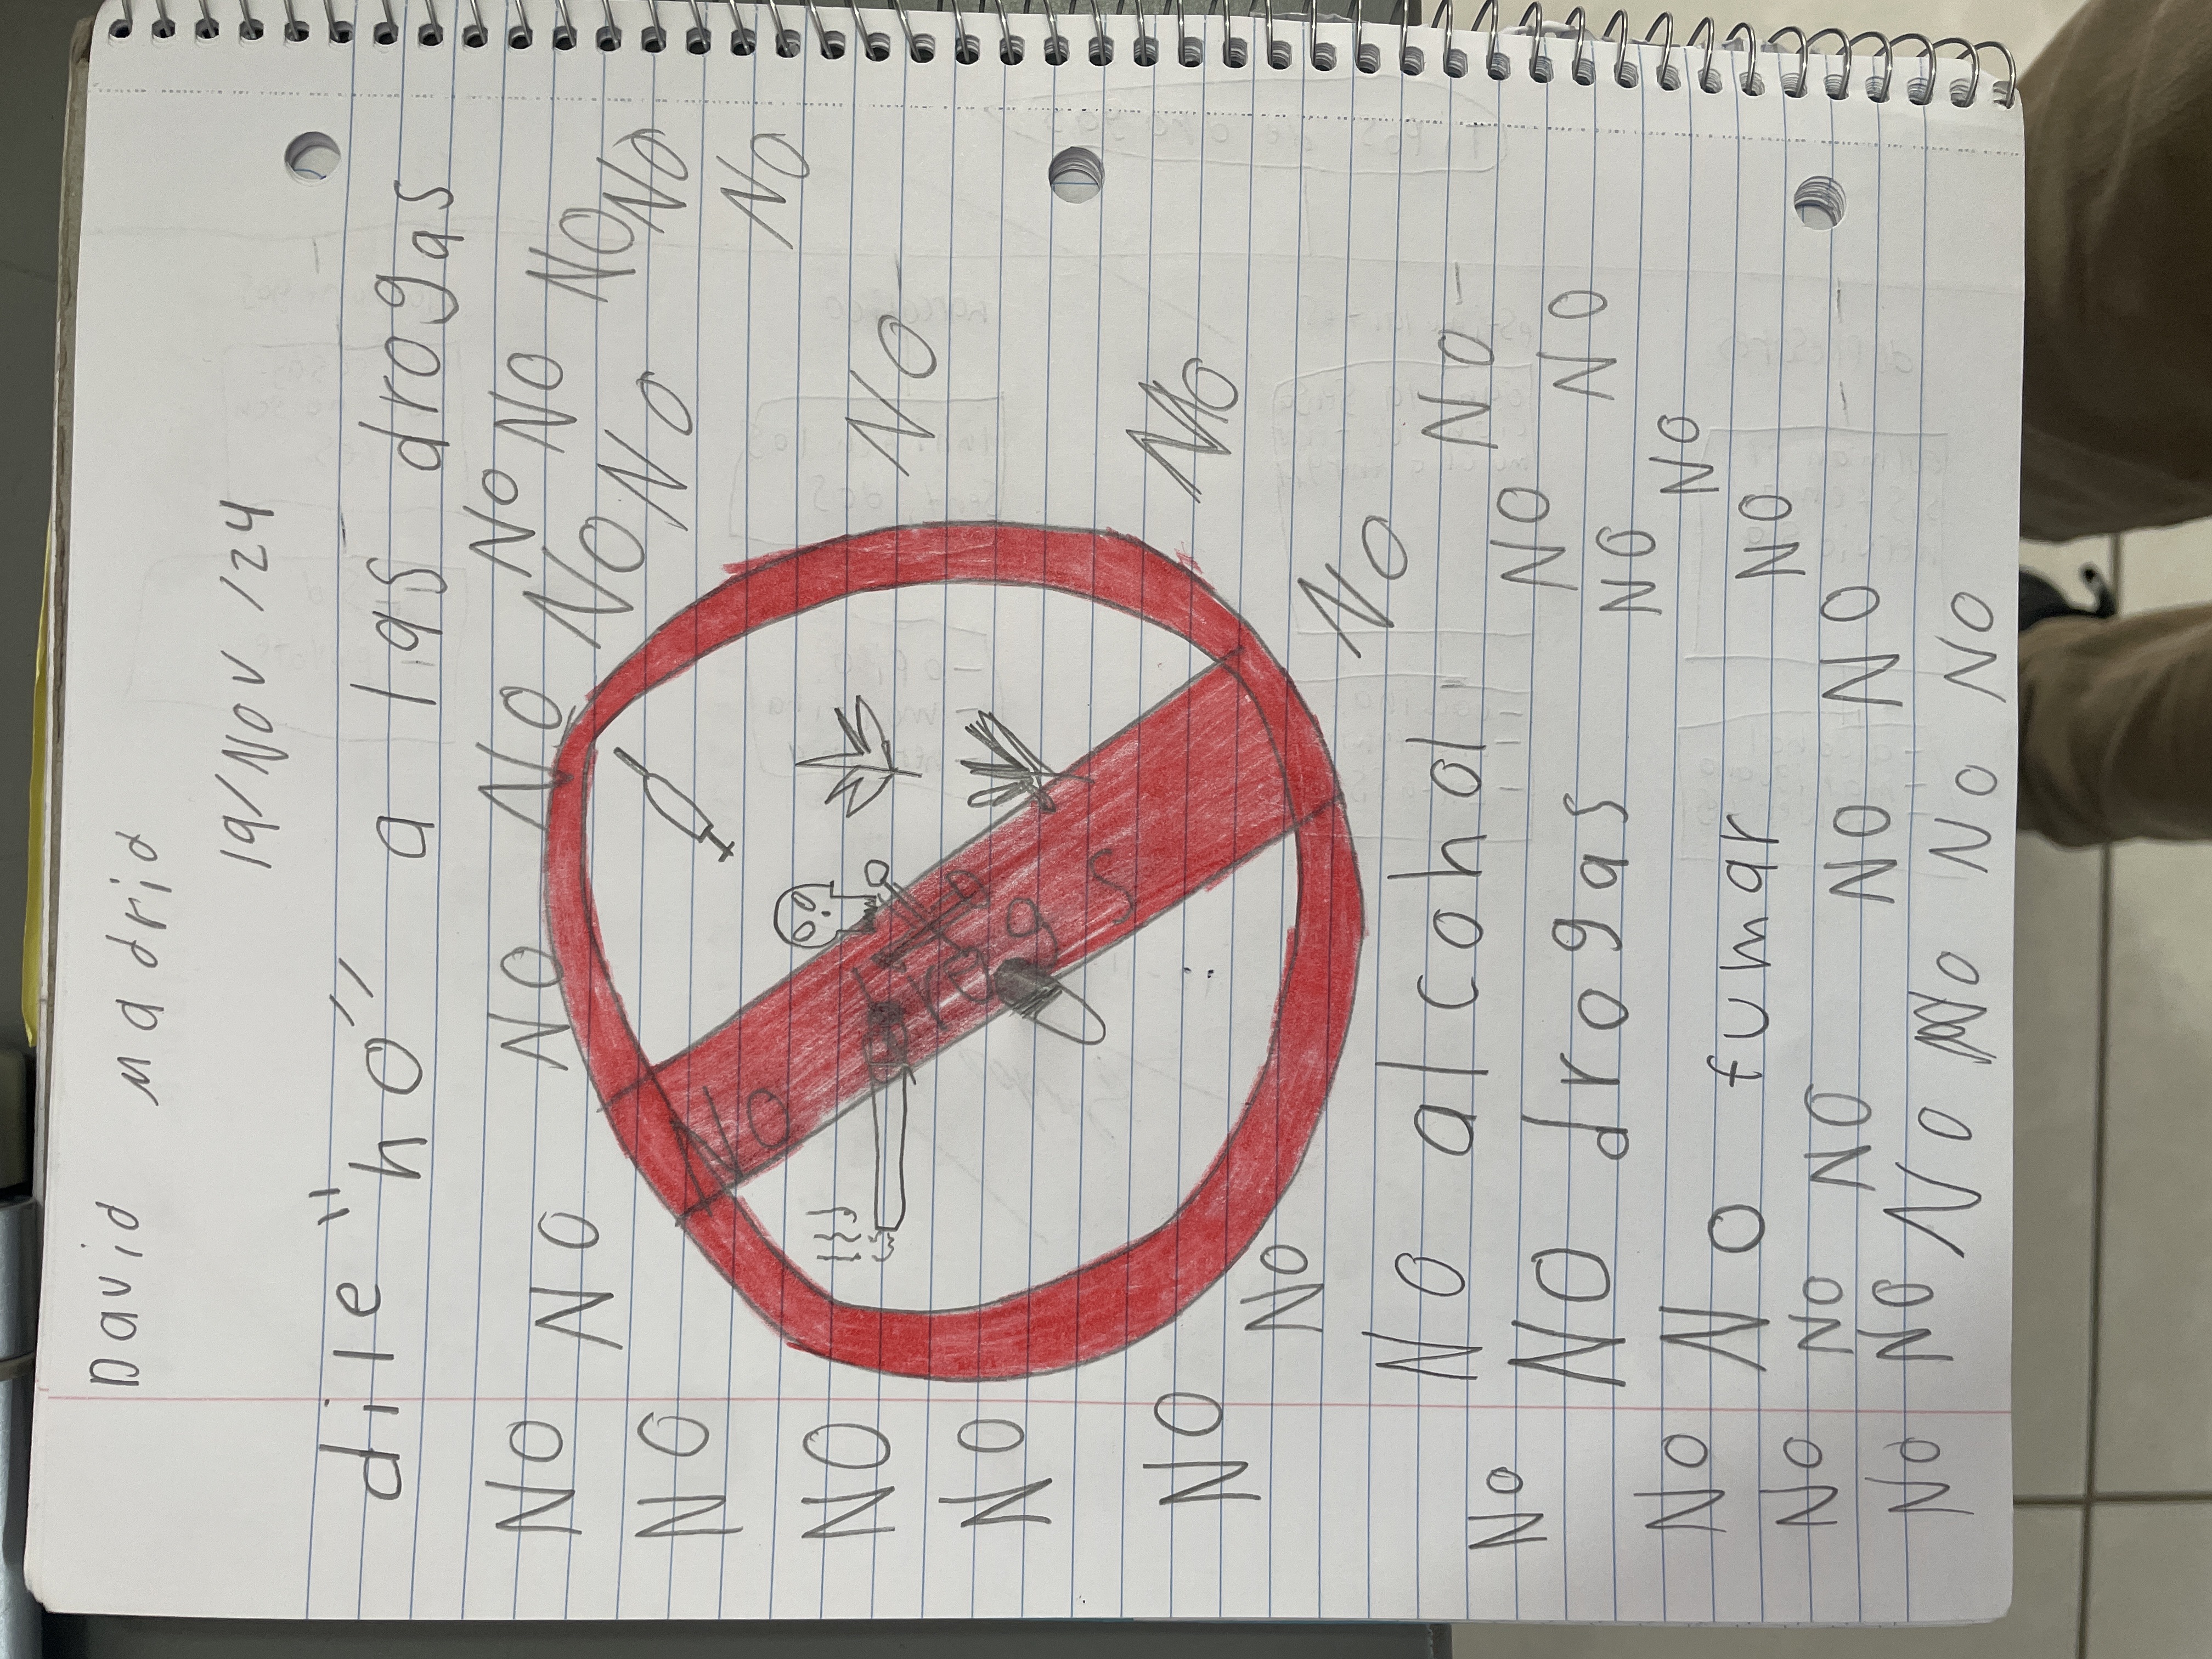 David madrid
19/Nov/24
dile "no" a las drogas
No NO No No No No No No
No No No
No
No
NO No
No
Drogs
NO No
No No
No alcohol No
No NO NO
NO drogas NO No
No No fumar NO
No No NO NO NO
No NO No No No NO